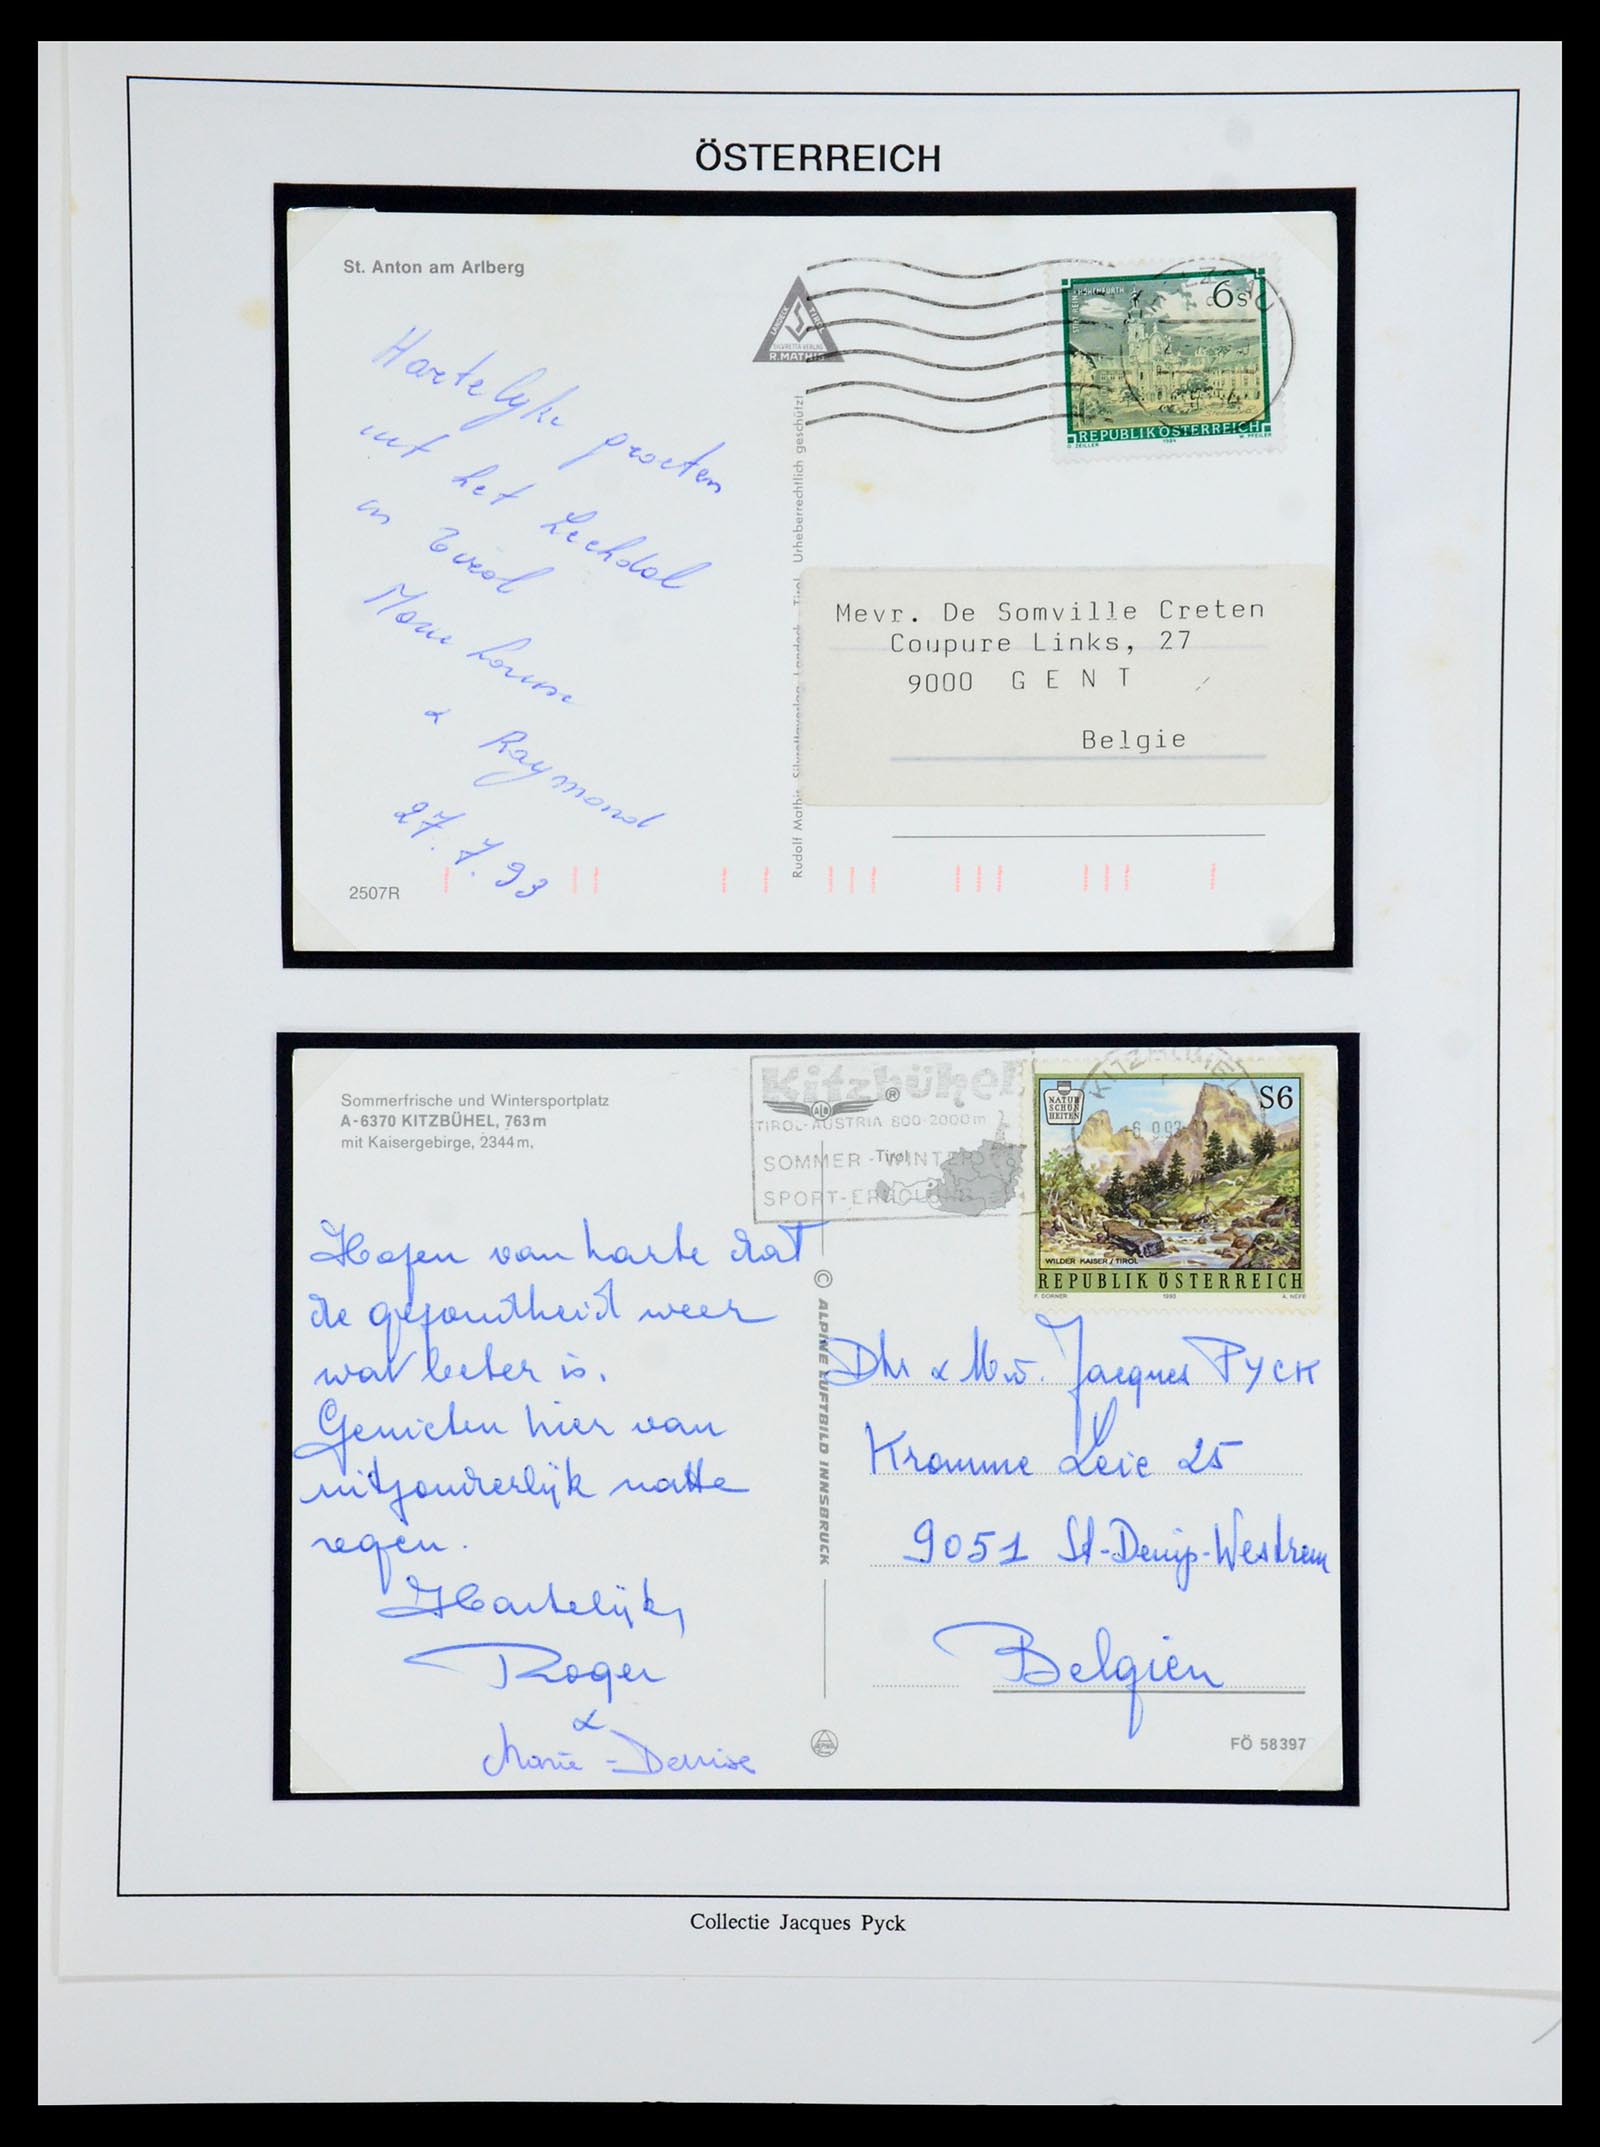 ÖSTERREICH
St. Anton am Arlberg
LANDECK TIROL
SILVRETTA-VERLAG
R. MATHIS
STIFT REIN-HOHENFURTH
6s
REPUBLIK ÖSTERREICH
O. ZEILLER 1984 W. PFEILER
Hartelyke groeten
uit het Lechdal
in Tirol
Marie Louise
& Raymond
27.7.93
2507R
Rudolf Mathis, Silvrettaverlag, Landeck - Tirol Urheberrechtlich geschützt!
Mevr. De Somville Creten
Coupure Links, 27
9000 GENT
Belgie
Sommerfrische und Wintersportplatz
A-6370 KITZBÜHEL, 763 m
mit Kaisergebirge, 2344 m,
Tirol
Kitzbühel
TIROL-AUSTRIA 800-2000 m
SOMMER - WINTER
SPORT-ERHOLUNG
KITZBÜHEL
NATUR
SCHÖN
HEITEN
S6
WILDER KAISER / TIROL
REPUBLIK ÖSTERREICH
F. DORNER 1993 A. NEFE
Hopen van harte dat
de gezondheid weer
wat beter is.
Genieten hier van
uitzonderlijk natte
regen.
Hartelijk,
Roger
&
Marie-Denise
© ALPINE LUFTBILD INNSBRUCK
Dhr & Mw. Jacques PYCK
Kromme Leie 25
9051 St-Denijs-Westrem
Belgien
FÖ 58397
Collectie Jacques Pyck